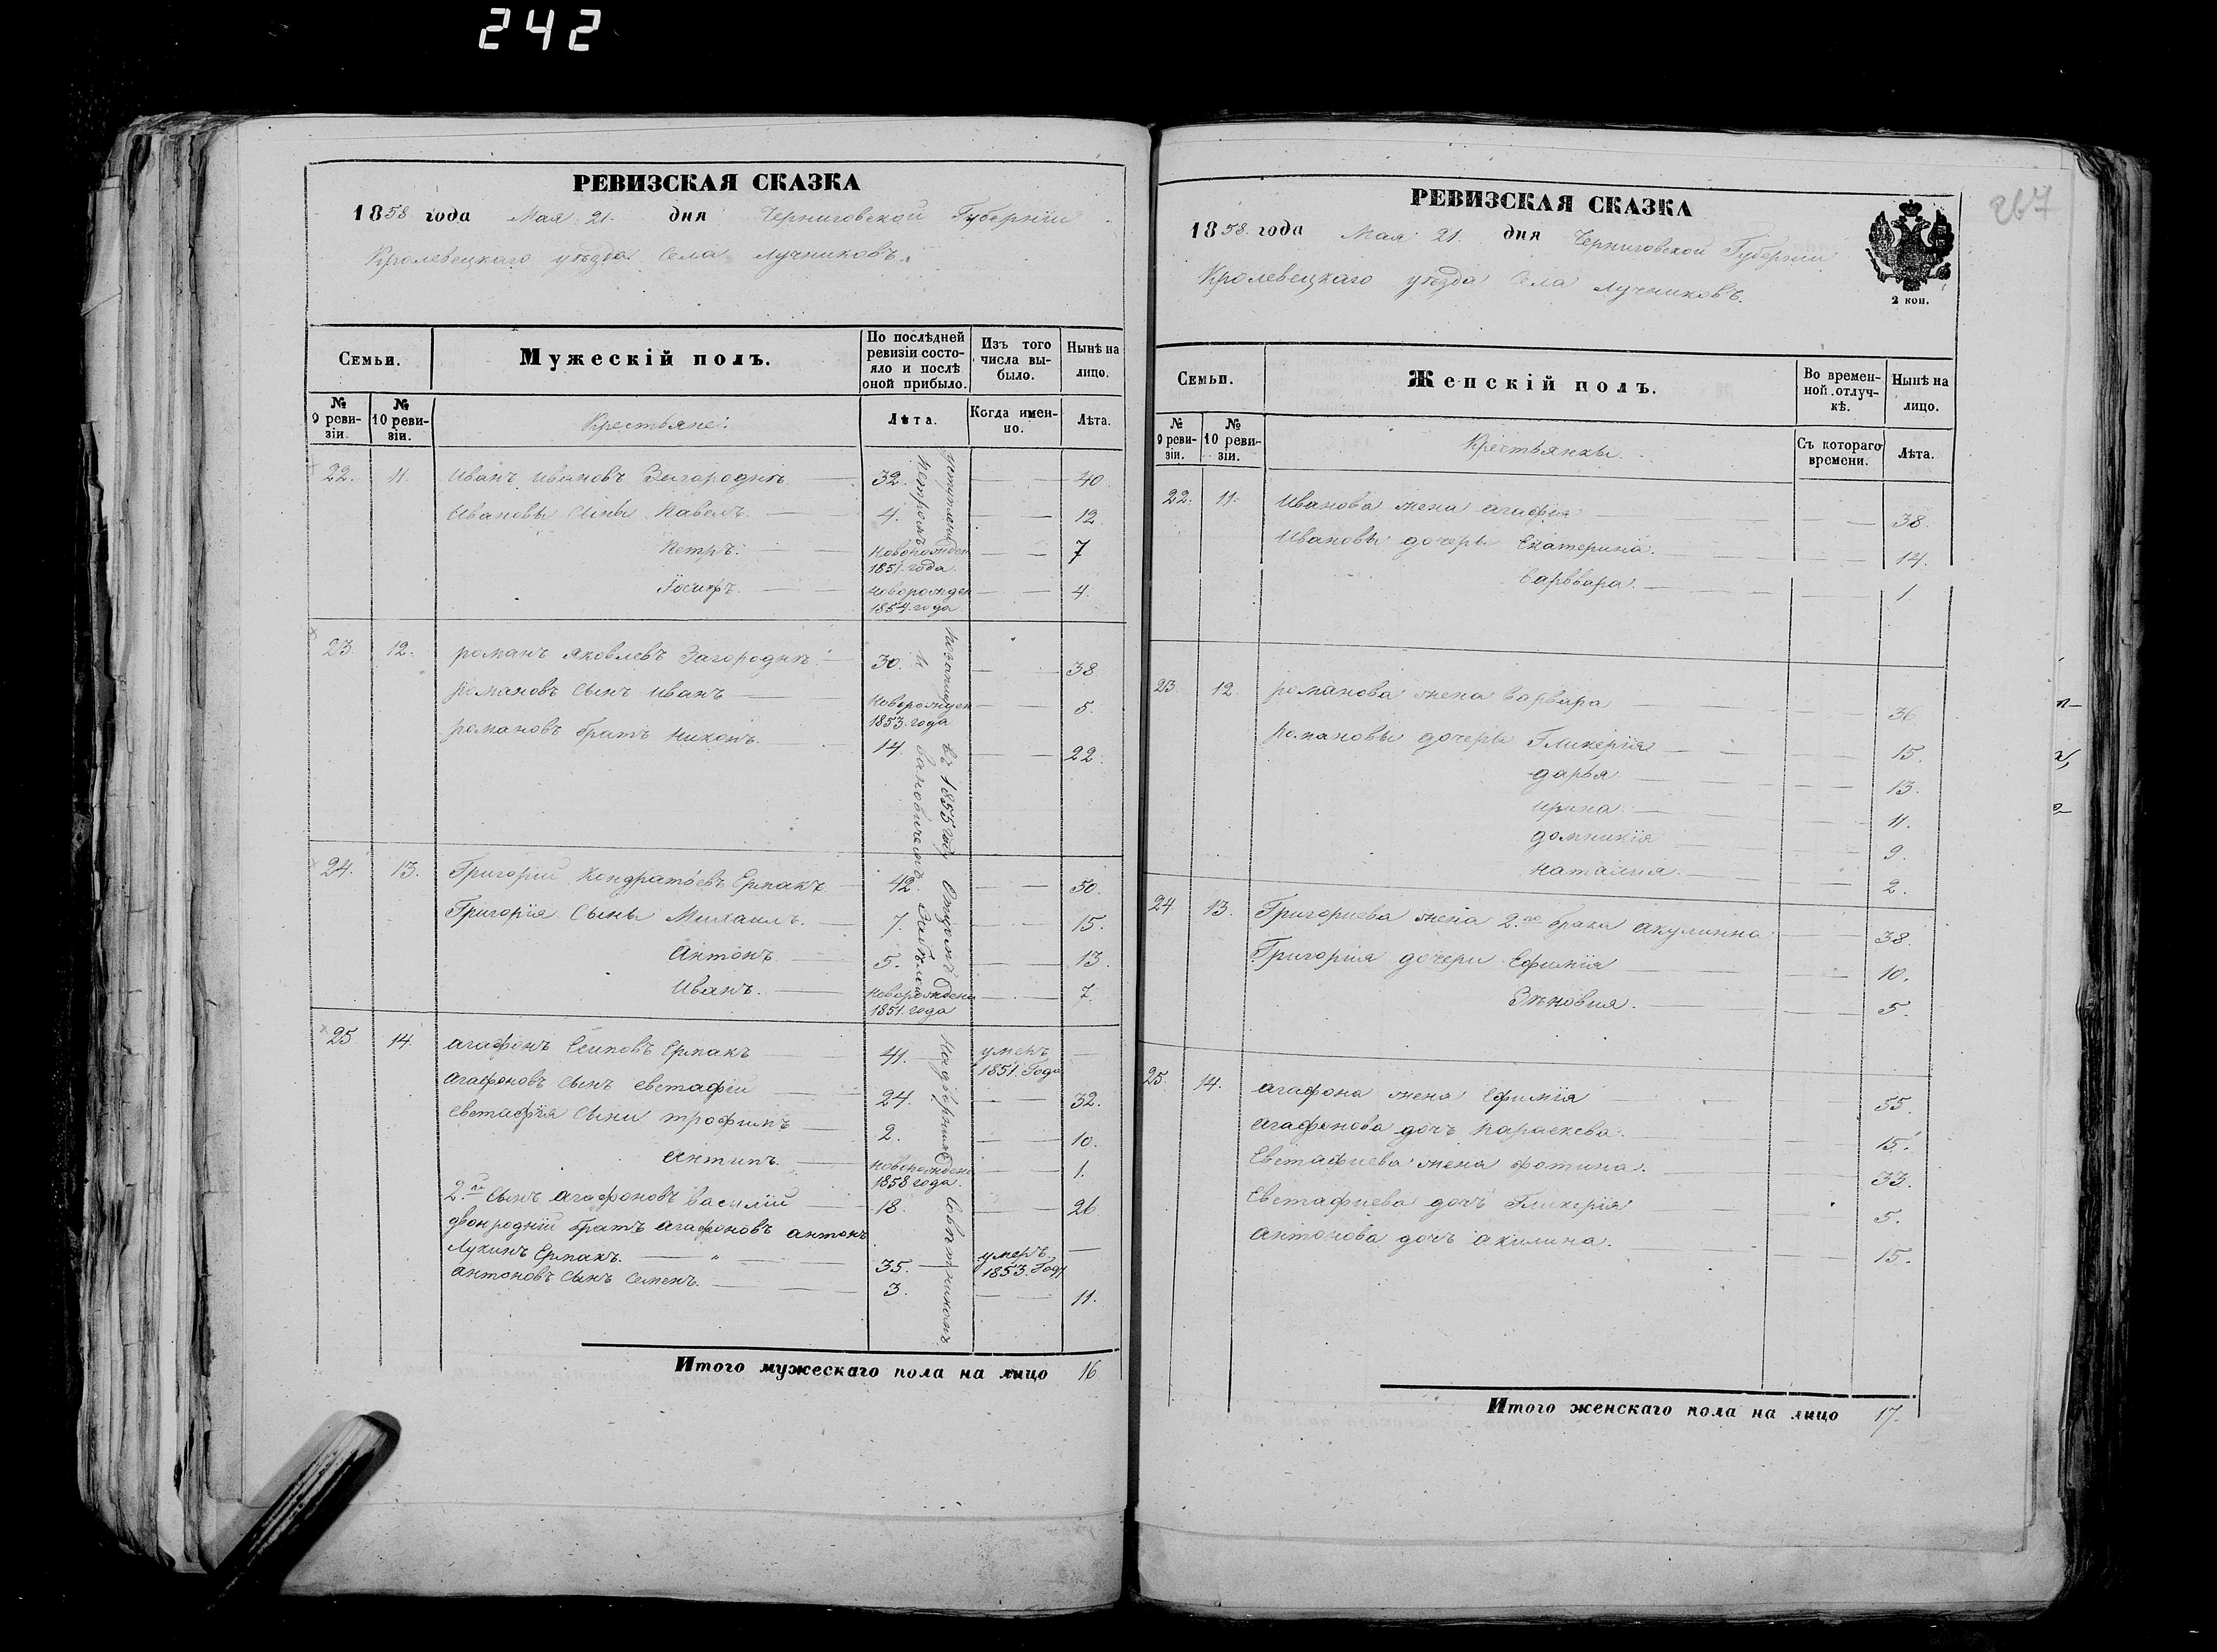 242
РЕВИЗСКАЯ СКАЗКА
1858 года Мая 21. дня Черниговской Губерніи
Кролевецкаго уѣзда Села Лучниковъ.
Семьи.
Мужескій полъ.
По послѣдней ревизіи состояло и послѣ оной прибыло.
Изъ того числа выбыло.
Нынѣ на лицо.
№ 9 ревизіи.
№ 10 ревизіи.
Крестьяне:
Лѣта.
Когда именно.
Лѣта.
22. 11. Иванъ Ивановъ Загородній 32. 40.
Ивановы Сыны Павелъ 4. 12.
Петръ. Новорожден 1851. года. 7
Іосифъ. Новорожден 1854. года 4.
23. 12. романъ яковлевъ Загородній 30. 38
романовъ Сынъ иванъ Новорожден 1853. года 5.
романовъ братъ никонъ. 14. 22.
24. 13. Григорій Кондратьевъ Ермакъ 42. 50.
Григорія Сыны Михаилъ. 7. 15.
Антонъ 5. 13.
Иванъ. Новорожденъ 1851. года 7.
25 14. агафонъ Ермакъ 41. умеръ 1851. Года
агафоновъ Сынъ евстафій 24. 32.
евстафія Сыни трофимъ 2. 10.
Антипъ. Новорожденъ 1858 года. 1.
2.й Сынъ агафоновъ василій 18. 26
двоюродній братъ агафоновъ антонъ
Лукинъ Ермакъ. 35. умеръ 1853. Году
антоновъ Сынъ Семенъ. 3. 11.
въ 1855 году Отцомъ Надворнимъ Совѣтникомъ
Петромъ Ивановичемъ Забѣлою
Итого мужескаго пола на лицо 16
267
РЕВИЗСКАЯ СКАЗКА
1858. года Мая 21. дня Черниговской Губерніи
Кролевецкаго уѣзда Села Лучниковъ.
2 коп.
Семьи.
Женскій полъ.
Во временной отлучкѣ.
Нынѣ на лицо.
№ 9 ревизіи.
№ 10 ревизіи.
Крестьянки.
Съ котораго времени.
Лѣта.
22. 11. Иванова жена агафія 38.
Ивановы дочеры Екатерина. 14.
варвара. 1.
23. 12. романова жена варвара 36.
романовы дочеры Гликерія 15.
дарья 13.
ирина. 11.
домникія 9.
наталия. 2.
24. 13. Григориева жена 2.го брака акулинна 38.
Григорія дочери Ефимія 10.
Зѣновия. 5.
25. 14. агафона жена Ефимія 55.
агафонова дочъ Параскева. 15.
Евстафиева жена фотина. 33.
Евстафиева дочъ Гликерія 5.
антонова дочъ акилина. 15.
Итого женскаго пола на лицо 17.